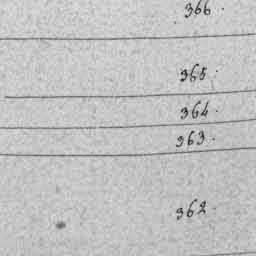 366.
365.
364.
363.
362.